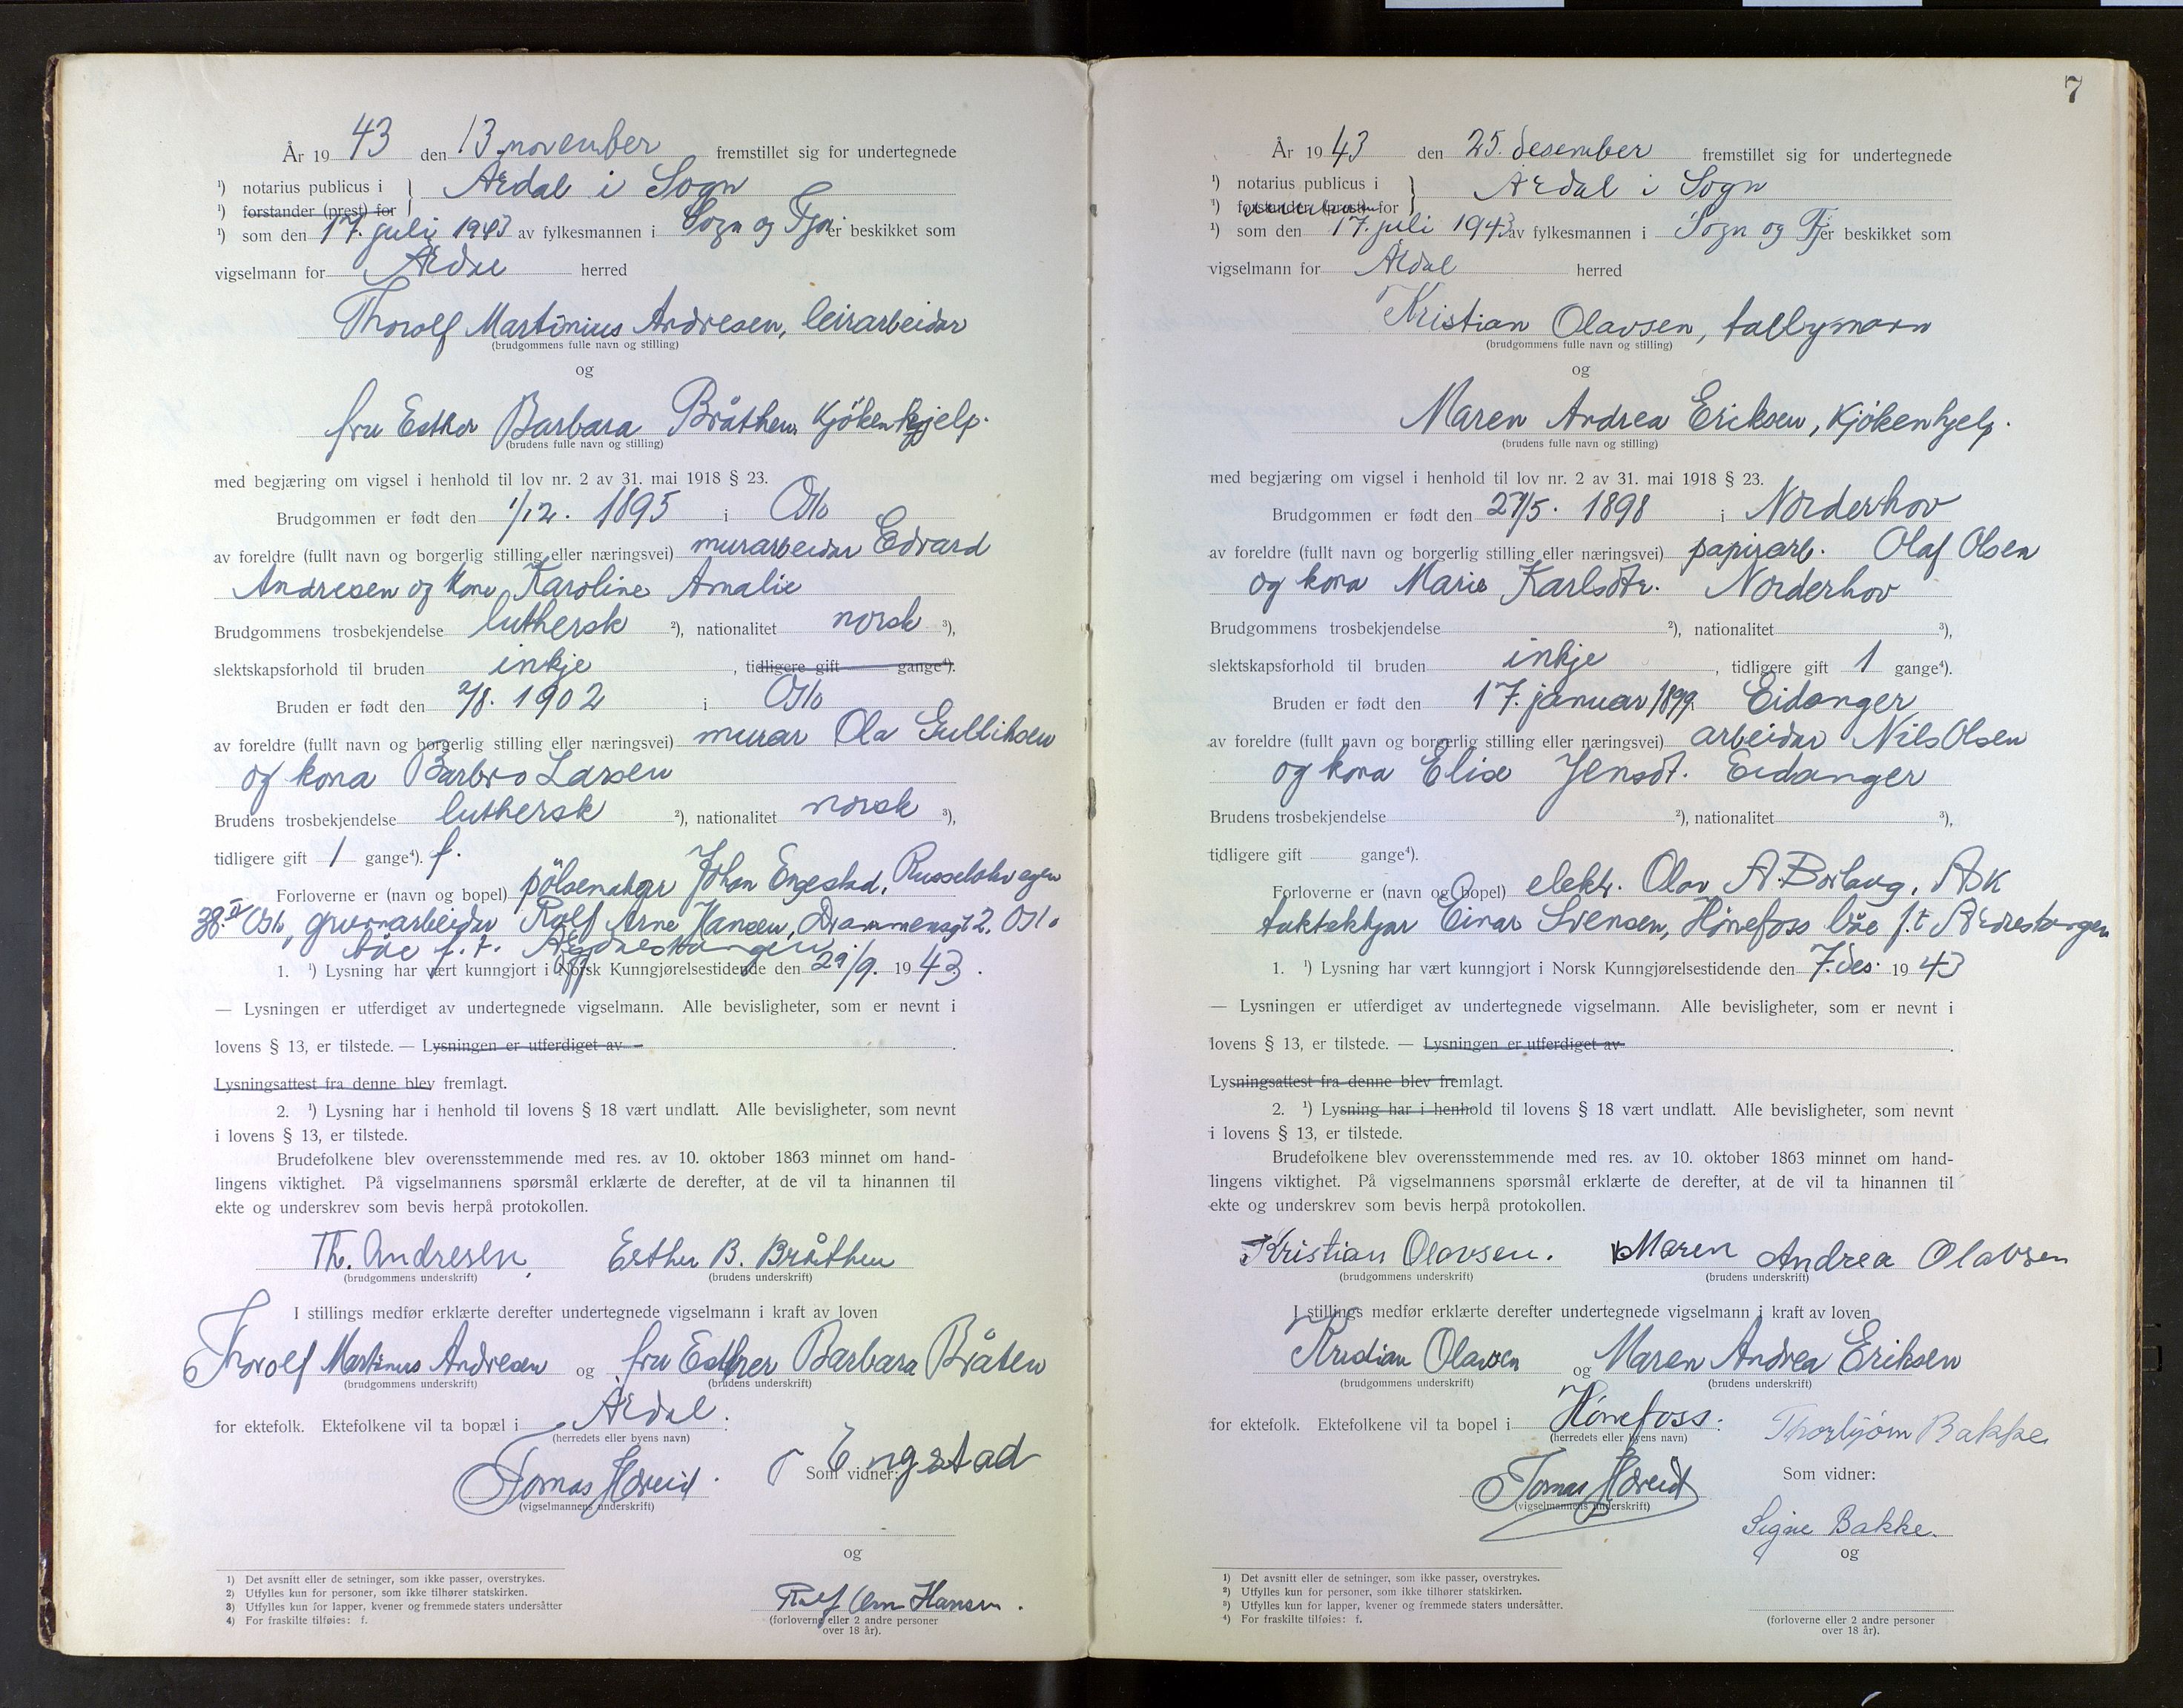 År 19 43 den 13. november fremstillet sig for undertegnede
¹) notarius publicus i } Årdal i Sogn
¹) forstander (prest) for
¹) som den 17. juli 1943 av fylkesmannen i Sogn og Fj. er beskikket som
vigselmann for Årdal herred
Thorolf Martinius Andresen, leirarbeidar
(brudgommens fulle navn og stilling)
og
fru Esther Barbara Bråthen, Kjökenhjelp.
(brudens fulle navn og stilling)
med begjæring om vigsel i henhold til lov nr. 2 av 31. mai 1918 § 23.
Brudgommen er født den 1/12. 1895 i Oslo
av foreldre (fullt navn og borgerlig stilling eller næringsvei) murarbeidar Edvard
Andresen og kona Karoline Amalie
Brudgommens trosbekjendelse luthersk ²), nationalitet norsk ³),
slektskapsforhold til bruden inkje , tidligere gift gange⁴).
Bruden er født den 2/8. 1902 i Oslo
av foreldre (fullt navn og borgerlig stilling eller næringsvei) murar Ola Gulliksen
og kona Barbro Larsen
Brudens trosbekjendelse luthersk ²), nationalitet norsk ³),
tidligere gift 1 gange⁴). f.
Forloverne er (navn og bopel) pölsemakar Johan Engestad,
38. II Oslo, gruvearbeidar Rolf Arne Hansen, Drammensgt 2. Oslo
båe f. t. Årdalstangen
1. ¹) Lysning har vært kunngjort i Norsk Kunngjørelsestidende den 29/9. 19 43.
— Lysningen er utferdiget av undertegnede vigselmann. Alle bevisligheter, som er nevnt i
lovens § 13, er tilstede. — Lysningen er utferdiget av
Lysningsattest fra denne blev fremlagt.
2. ¹) Lysning har i henhold til lovens § 18 vært undlatt. Alle bevisligheter, som nevnt
i lovens § 13, er tilstede.
Brudefolkene blev overensstemmende med res. av 10. oktober 1863 minnet om hand-
lingens viktighet. På vigselmannens spørsmål erklærte de derefter, at de vil ta hinannen til
ekte og underskrev som bevis herpå protokollen.
Th. Andresen. Esther B. Bråthen
(brudgommens underskrift) (brudens underskrift)
I stillings medfør erklærte derefter undertegnede vigselmann i kraft av loven
Thorolf Martinius Andresen og fru Esther Barbara Bråten
(brudgommens underskrift) (brudens underskrift)
for ektefolk. Ektefolkene vil ta bopæl i Årdal.
(herredets eller byens navn)
J Engstad
Tomas Hereid. Som vidner:
(vigselmannens underskrift)
og
Rolf Arne Hansen.
(forloverne eller 2 andre personer
over 18 år).
1) Det avsnitt eller de setninger, som ikke passer, overstrykes.
2) Utfylles kun for personer, som ikke tilhører statskirken.
3) Utfylles kun for lapper, kvener og fremmede staters undersåtter
4) For fraskilte tilføies: f.
7
År 19 43 den 25. desember fremstillet sig for undertegnede
¹) notarius publicus i } Årdal i Sogn
¹) forstander (prest) for
¹) som den 17. juli 1943 av fylkesmannen i Sogn og Fj. er beskikket som
vigselmann for Årdal herred
Kristian Olavsen, tallymann
(brudgommens fulle navn og stilling)
og
Maren Andrea Eriksen, Kjökenhjelp.
(brudens fulle navn og stilling)
med begjæring om vigsel i henhold til lov nr. 2 av 31. mai 1918 § 23.
Brudgommen er født den 27/5. 1898 i Norderhov
av foreldre (fullt navn og borgerlig stilling eller næringsvei) papirarb. Olaf Olsen
og kona Marie Karlsdtr. Norderhov
Brudgommens trosbekjendelse ²), nationalitet ³),
slektskapsforhold til bruden inkje , tidligere gift 1 gange⁴).
Bruden er født den 17. januar 1899. Eidanger
av foreldre (fullt navn og borgerlig stilling eller næringsvei) arbeidar Nils Olsen
og kona Elise Jensdt. Eidanger
Brudens trosbekjendelse ²), nationalitet ³),
tidligere gift gange⁴).
Forloverne er (navn og bopel) elektr. Olav A. Borlaug, Ask
Einar Svensen, Hönefoss båe f.t Årdalstangen
1. ¹) Lysning har vært kunngjort i Norsk Kunngjørelsestidende den 7. des. 19 43
— Lysningen er utferdiget av undertegnede vigselmann. Alle bevisligheter, som er nevnt i
lovens § 13, er tilstede. — Lysningen er utferdiget av
Lysningsattest fra denne blev fremlagt.
2. ¹) Lysning har i henhold til lovens § 18 vært undlatt. Alle bevisligheter, som nevnt
i lovens § 13, er tilstede.
Brudefolkene blev overensstemmende med res. av 10. oktober 1863 minnet om hand-
lingens viktighet. På vigselmannens spørsmål erklærte de derefter, at de vil ta hinannen til
ekte og underskrev som bevis herpå protokollen.
Kristian Olavsen. Maren Andrea Olavsen
(brudgommens underskrift) (brudens underskrift)
I stillings medfør erklærte derefter undertegnede vigselmann i kraft av loven
Kristian Olavsen og Maren Andrea Eriksen
(brudgommens underskrift) (brudens underskrift)
for ektefolk. Ektefolkene vil ta bopel i Hönefoss. Thorbjørn Bakke
(herredets eller byens navn)
Tomas Hereid Som vidner:
(vigselmannens underskrift)
Signe Bakke.
og
(forloverne eller 2 andre personer
over 18 år).
1) Det avsnitt eller de setninger, som ikke passer, overstrykes.
2) Utfylles kun for personer, som ikke tilhører statskirken.
3) Utfylles kun for lapper, kvener og fremmede staters undersåtter.
4) For fraskilte tilføies: f.